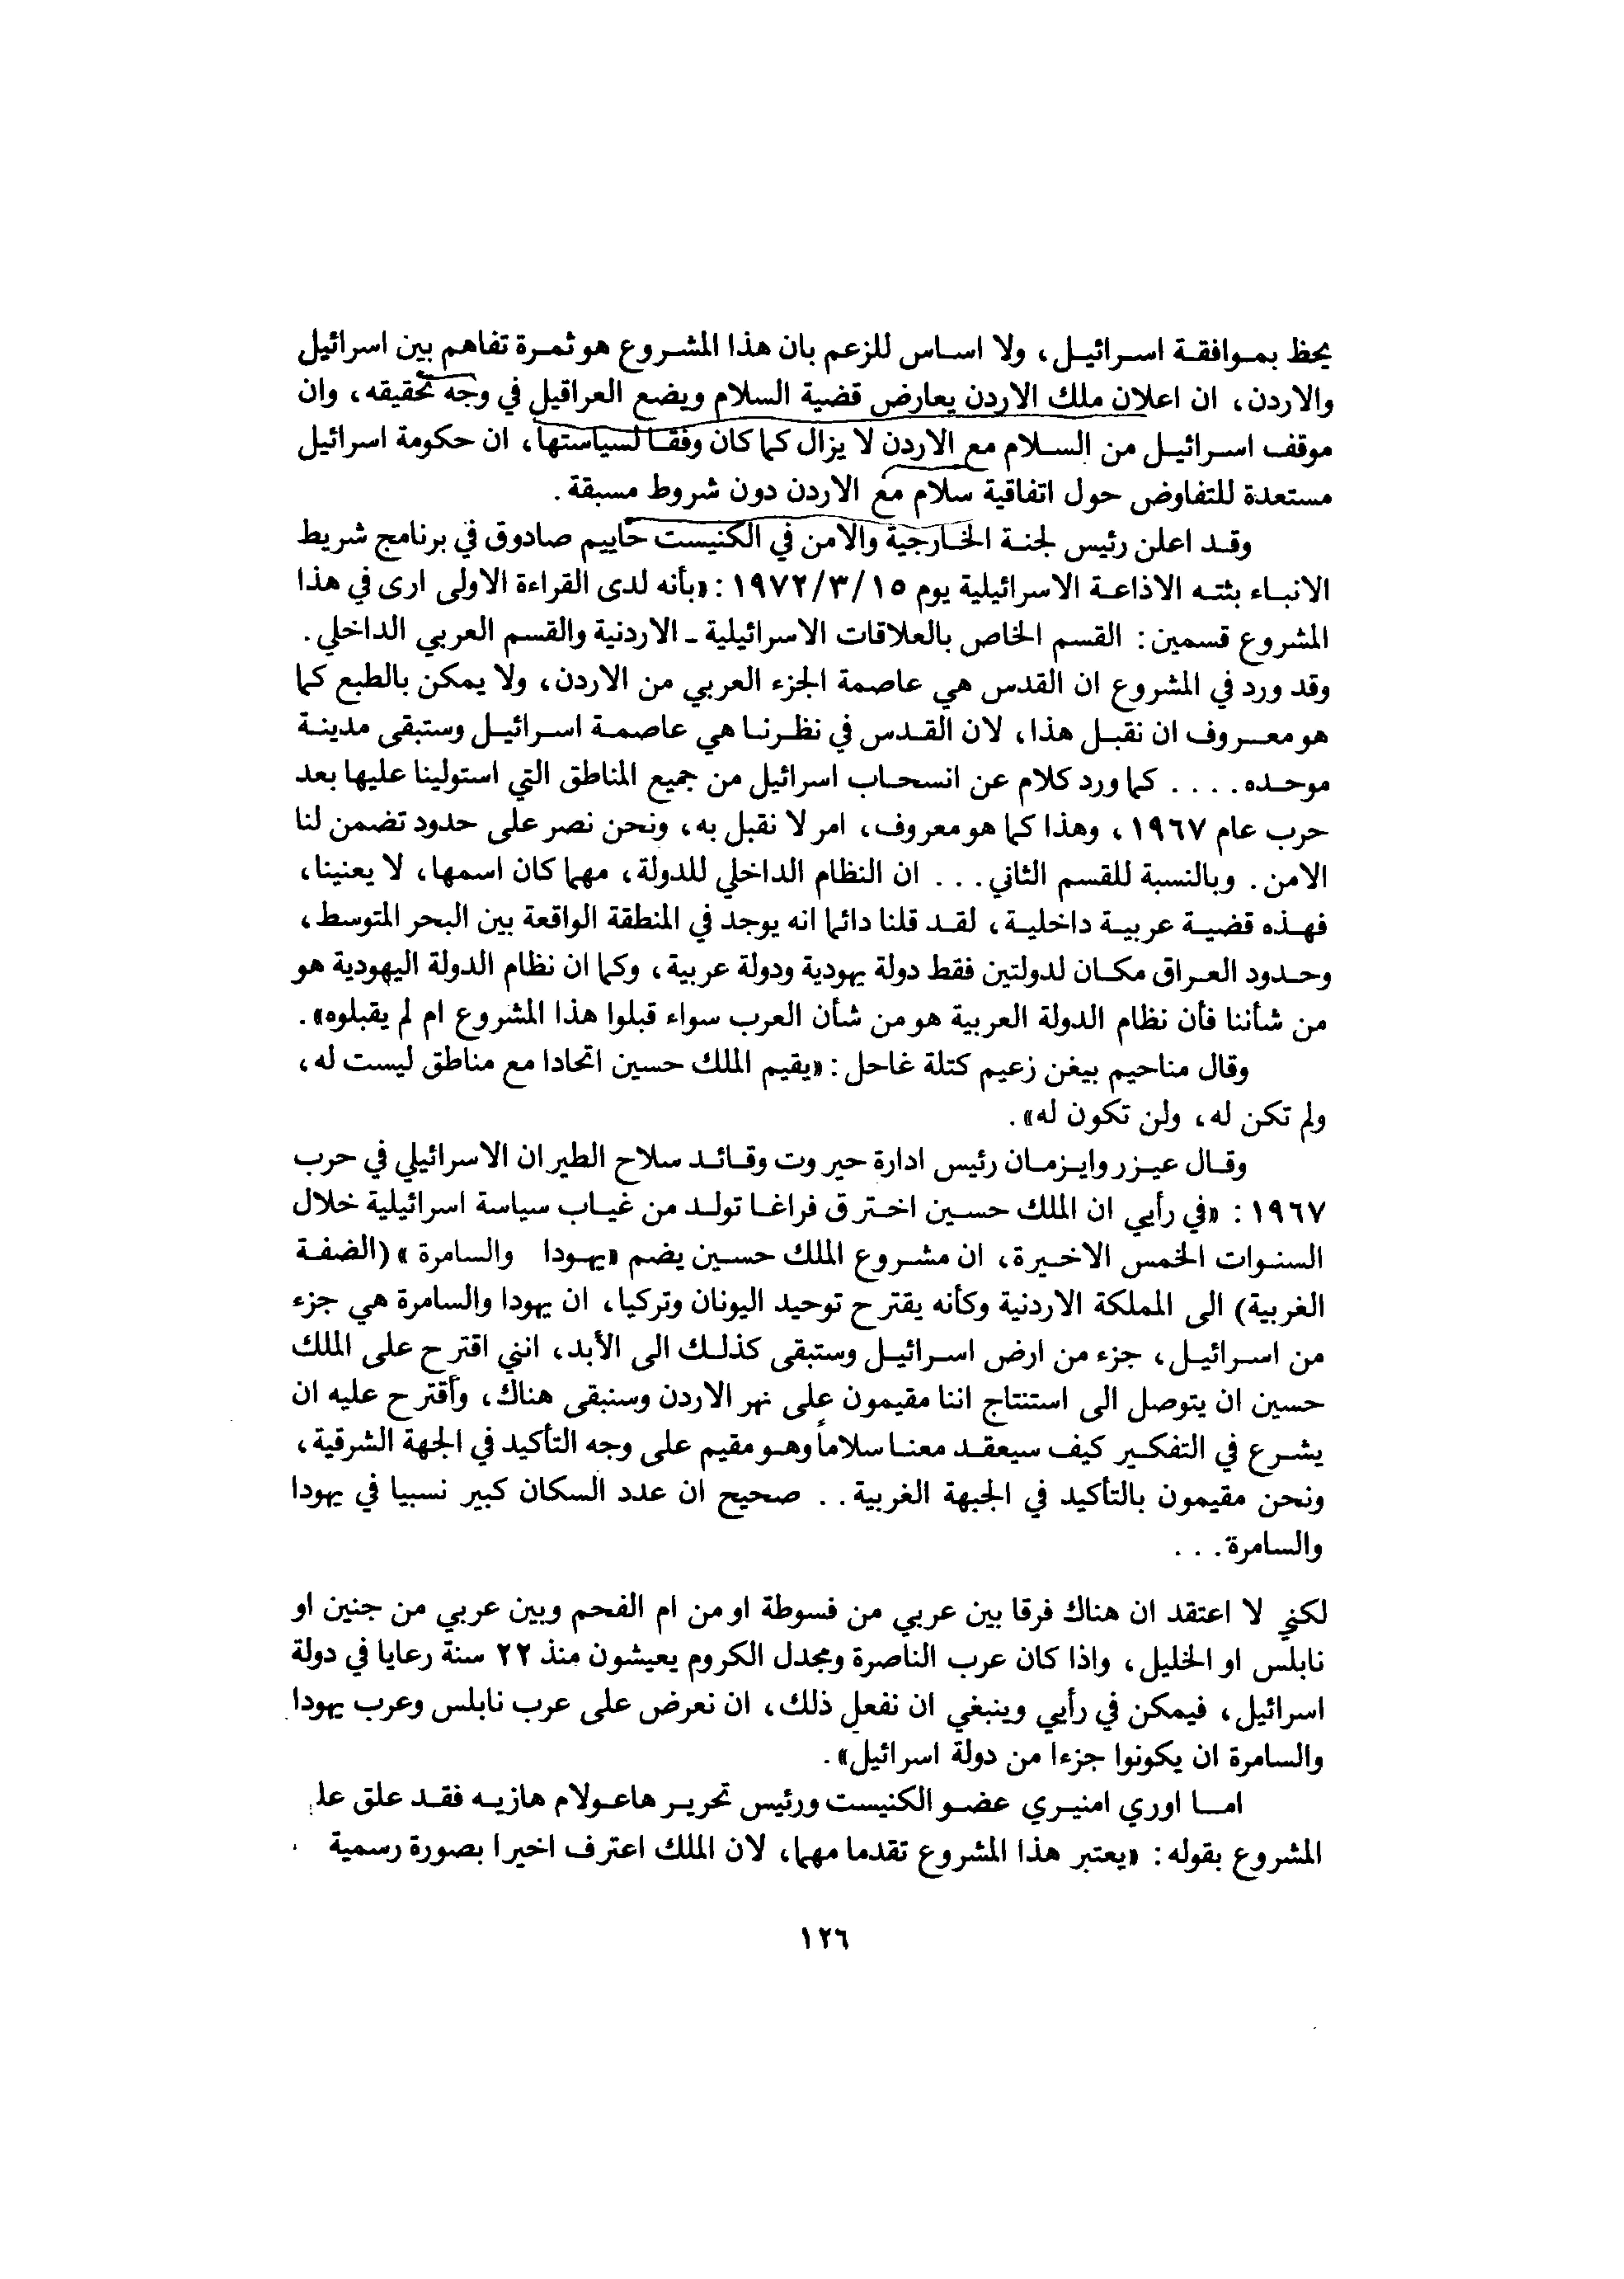 يحظ بموافقة اسرائيل، ولا اساس للزعم بان هذا المشروع هو ثمرة تفاهم بين اسرائيل
والاردن، ان اعلان ملك الاردن يعارض قضية السلام ويضع العراقيل في وجه تحقيقه، وان
موقف اسرائيل من السلام مع الاردن لا يزال كما كان وفقا لسياستها، ان حكومة اسرائيل
مستعدة للتفاوض حول اتفاقية سلام مع الاردن دون شروط مسبقة.
وقد اعلن رئيس لجنة الخارجية والامن في الكنيست حاييم صادوق في برنامج شريط
الانباء بثته الاذاعة الاسرائيلية يوم ١٩٧٢/٣/١٥: «بأنه لدى القراءة الاولى ارى في هذا
المشروع قسمين: القسم الخاص بالعلاقات الاسرائيلية ـ الاردنية والقسم العربي الداخلي.
وقد ورد في المشروع ان القدس هي عاصمة الجزء العربي من الاردن، ولا يمكن بالطبع كما
هو معروف ان نقبل هذا، لان القدس في نظرنا هي عاصمة اسرائيل وستبقى مدينة
موحده.... كما ورد كلام عن انسحاب اسرائيل من جميع المناطق التي استولينا عليها بعد
حرب عام ١٩٦٧، وهذا كما هو معروف، امر لا نقبل به، ونحن نصر على حدود تضمن لنا
الامن. وبالنسبة للقسم الثاني... ان النظام الداخلي للدولة، مهما كان اسمها، لا يعنينا،
فهذه قضية عربية داخلية، لقد قلنا دائما انه يوجد في المنطقة الواقعة بين البحر المتوسط،
وحدود العراق مكان لدولتين فقط دولة يهودية ودولة عربية، وكما ان نظام الدولة اليهودية هو
من شأننا فأن نظام الدولة العربية هو من شأن العرب سواء قبلوا هذا المشروع ام لم يقبلوه».
وقال مناحيم بيغن زعيم كتلة غاحل: «يقيم الملك حسين اتحادا مع مناطق ليست له،
ولم تكن له، ولن تكون له».
وقال عيزر وايزمان رئيس ادارة حيروت وقائد سلاح الطيران الاسرائيلي في حرب
١٩٦٧: «في رأيي ان الملك حسين اخترق فراغا تولد من غياب سياسة اسرائيلية خلال
السنوات الخمس الاخيرة، ان مشروع الملك حسين يضم «يهودا والسامرة» (الضفة
الغربية) الى المملكة الاردنية وكأنه يقترح توحيد اليونان وتركيا، ان يهودا والسامرة هي جزء
من اسرائيل، جزء من ارض اسرائيل وستبقى كذلك الى الأبد، انني اقترح على الملك
حسين ان يتوصل الى استنتاج اننا مقيمون على نهر الاردن وسنبقى هناك، وأقترح عليه ان
يشرع في التفكير كيف سيعقد معنا سلاماً وهو مقيم على وجه التأكيد في الجهة الشرقية،
ونحن مقيمون بالتأكيد في الجبهة الغربية.. صحيح ان عدد السكان كبير نسبيا في يهودا
والسامرة...
لكني لا اعتقد ان هناك فرقا بين عربي من فسوطة او من ام الفحم وبين عربي من جنين او
نابلس او الخليل، واذا كان عرب الناصرة ومجدل الكروم يعيشون منذ ٢٢ سنة رعايا في دولة
اسرائيل، فيمكن في رأيي وينبغي ان نفعل ذلك، ان نعرض على عرب نابلس وعرب يهودا
والسامرة ان يكونوا جزءا من دولة اسرائيل».
اما اوري امنيري عضو الكنيست ورئيس تحرير هاعولام هازيه فقد علق
المشروع بقوله: «يعتبر هذا المشروع تقدما مهما، لان الملك اعترف اخيرا بصورة رسمية
١٢٦